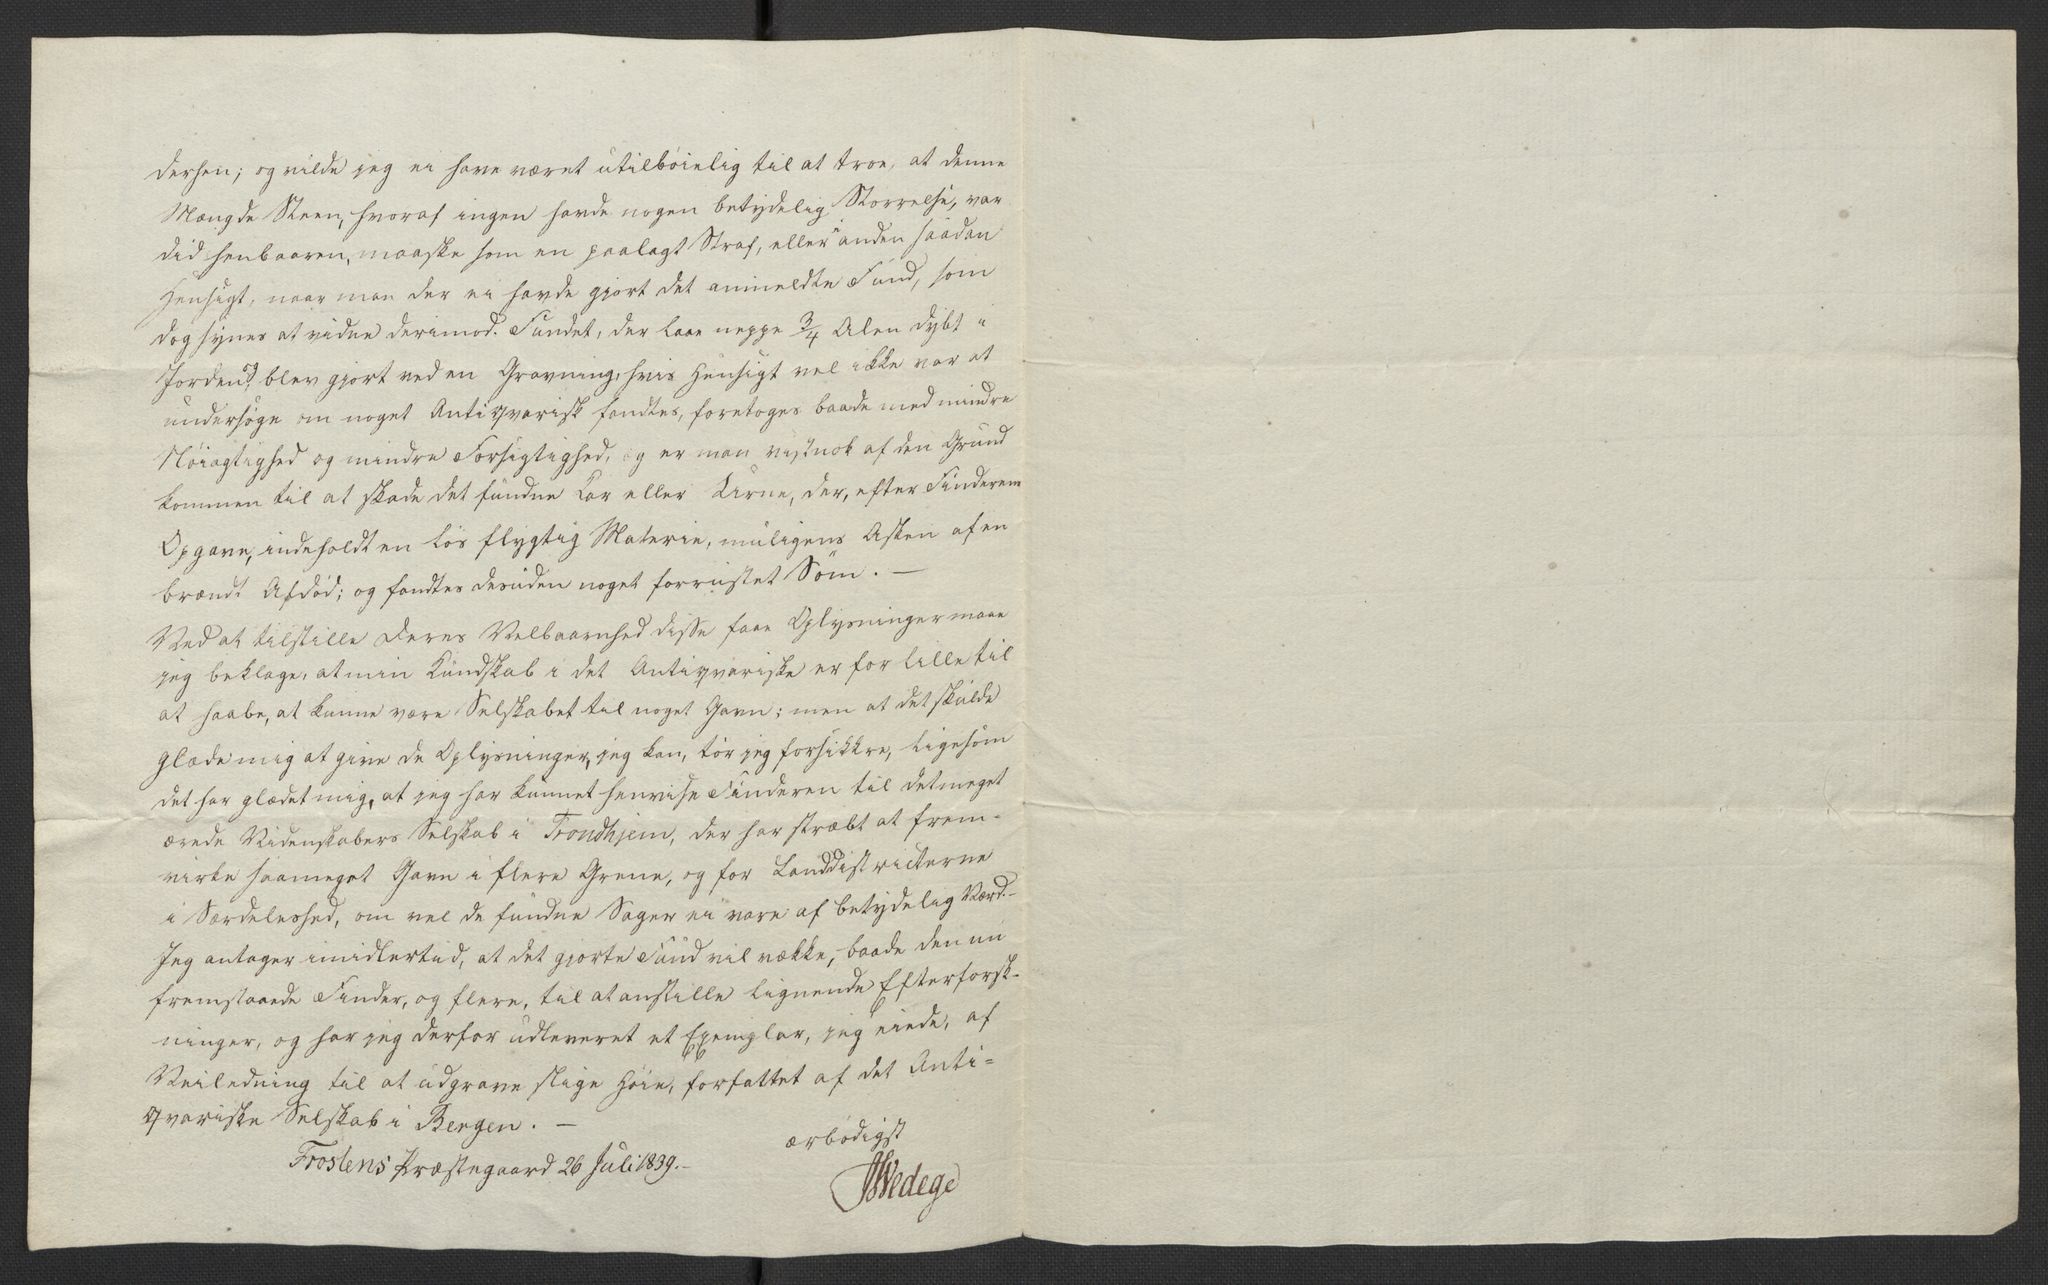 derhen; og vilde jeg ei have været utilbøielig til at troe, at denne
Mængde Steen, hvoraf ingen havde nogen betydelig Størrelse, var
did henbaaren, maaske som en paalagt Straf, eller i anden saadan
Hensigt, naar man der ei havde gjort det anmeldte Fund, som
dog synes at vidne derimod. Fundet, der laae neppe 3/4 Alen dybt i
Jorden, og blev gjort ved en Gravning, hvis Hensigt vel ikke var at
undersøge om noget Antiqvarisk fandtes, foretoges baade med mindre
Nøiagtighed og mindre Forsigtighed, og er man vistnok af den Grund
kommen til at skade det fundne Kar eller Urne, der, efter Finderens
Opgave, indeholdt en løs flygtig Materie, muligens Asken af en
brændt Afdød; og fandtes desuden noget forrustet Söm. —
Ved at tilstille Deres Velbaarnhed disse faae Oplysninger maae
jeg beklage, at min Kundskab i det Antiqvariske er for lille til
at haabe, at kunne være Selskabet til noget Gavn; men at det skulde
glæde mig at give de Oplysninger, jeg kan, tör jeg forsikkre, ligesom
det har glædet mig, at jeg har kunnet henvise Finderen til det meget
ærede Videnskabers Selskab i Trondhjem, der har stræbt at frem-
virke saameget Gavn i flere Grene, og for Landdistricterne
i Særdeleshed, om vel de fundne Sager ei vare af betydelig Værd. –
Jeg antager imidlertid, at det gjorte Fund vil vække, baade den nu
fremstaaede Finder, og flere, til at anstille lignende Efterforsk-
ninger, og har jeg derfor udleveret et Exemplar, jeg eiede, af
Veiledning til at udgrave slige Høie, forfattet af det Anti-
qvariske Selskab i Bergen. —
ærbødigst
Frostens Præstegaard 26 Juli 1839. –
Wedege